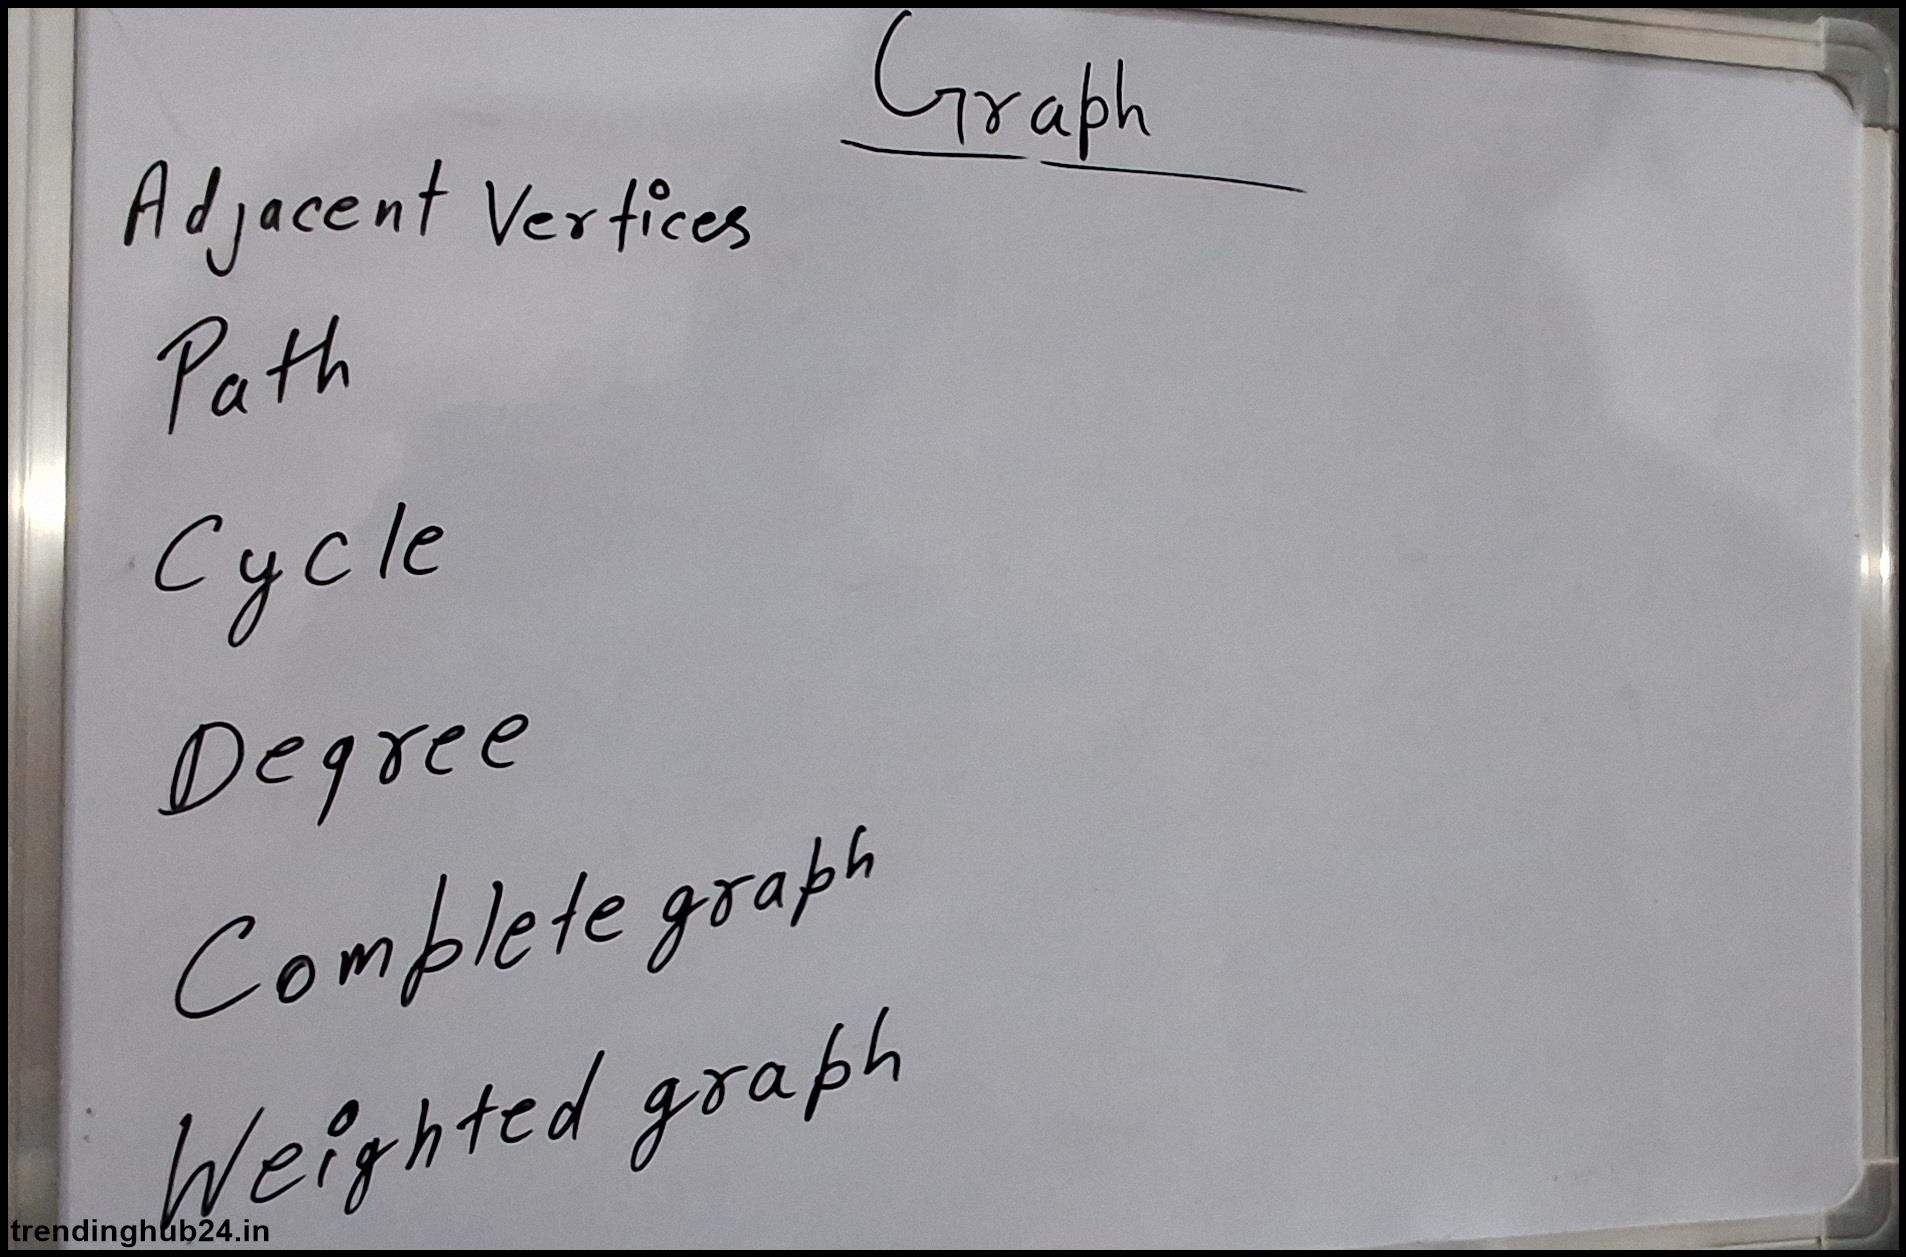 Graph
Adjacent Vertices
Path
Cycle
Degree
Complete graph
Weighted graph
trendinghub24.in